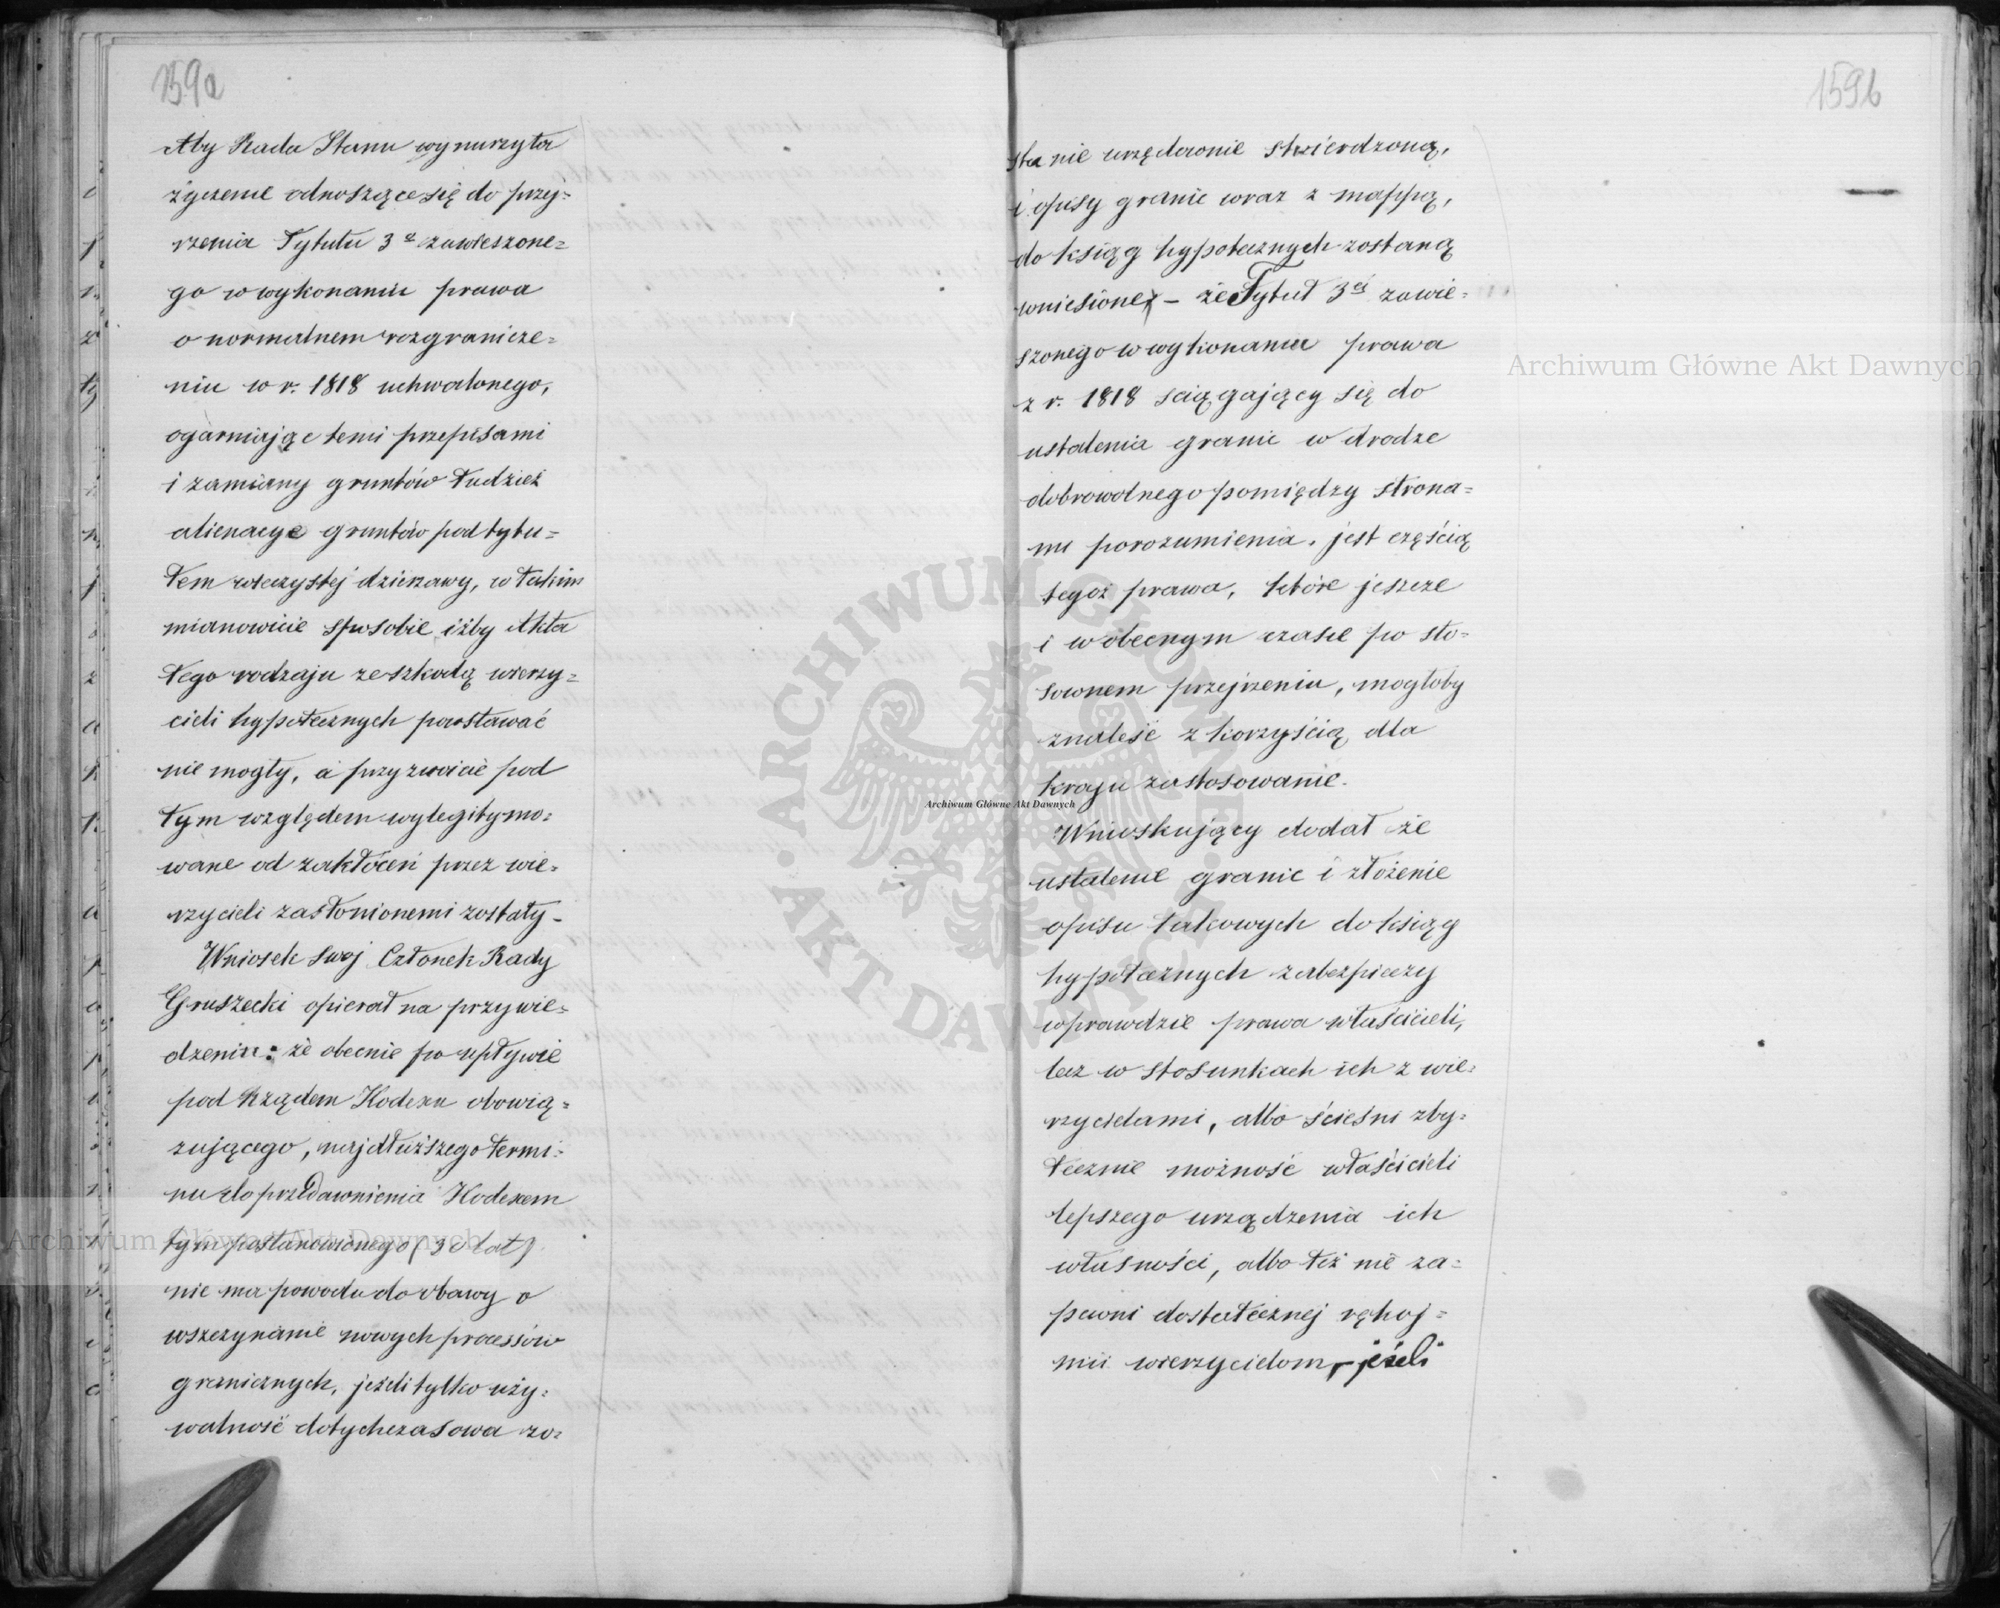 159a
Aby Rada Stanu wynurzyła
życzenie odnoszące się do przej=
rzenia Tytułu 3º zawieszone=
go w wykonaniu prawa
o normalnem rozgranicze=
niu w r. 1818 uchwalonego,
ogarniając temi przepisami
i zamiany gruntów tudzież
alienacye gruntów pod tytu=
łem wieczystej dzierżawy, w takim
mianowicie sposobie iżby Akta
tego rodzaju ze szkodą wierzy=
cieli hypotecznych powstawać
nie mogły, a przyzwoicie pod
tym względem wylegitymo=
wane od zakłóceń przez wie=
rzycieli zasłonionemi zostały –
Wniosek swój Członek Rady
Gruszecki opierał na przywie=
dzeniu: że obecnie po upływie
pod Rządem Kodexu obowią=
zującego, najdłuższego termi=
nu do przedawnienia Kodexem
tym postanowionego (30 lat)
nie ma powodu do obawy o
wszczynanie nowych processów
granicznych, jeżeli tylko uży=
walność dotychczasowa zo=
159b
stanie urzędownie stwierdzoną,
i opisy granic wraz z mappą,
do ksiąg hypotecznych zostaną
wniesione, – że Tytuł 3ci zawie=
szonego w wykonaniu prawa
z r. 1818 sciągający się do
ustalenia granic w drodze
dobrowolnego pomiędzy strona=
mi porozumienia, jest częścią
tegoż prawa, które jeszcze
i w obecnym czasie po sto=
sownem przejrzeniu, mogłoby
znaleść z korzyścią dla
kraju zastosowanie.
Wnioskujący dodał że
ustalenie granic i złożenie
opisu takowych do ksiąg
hypotecznych zabezpieczy
wprawdzie prawa właścicieli,
lecz w stosunkach ich z wie=
rzycielami, albo ścieśni zby=
tecznie możność właścicieli
lepszego urządzenia ich
własności, albo też nie za=
pewni dostatecznej rękoj=
mii wierzycielom, – jeżeli
Archiwum Główne Akt Dawnych
Archiwum Główne Akt Dawnych
Archiwum Główne Akt Dawnych
ARCHIWUM GŁÓWNE · AKT DAWNYCH ·